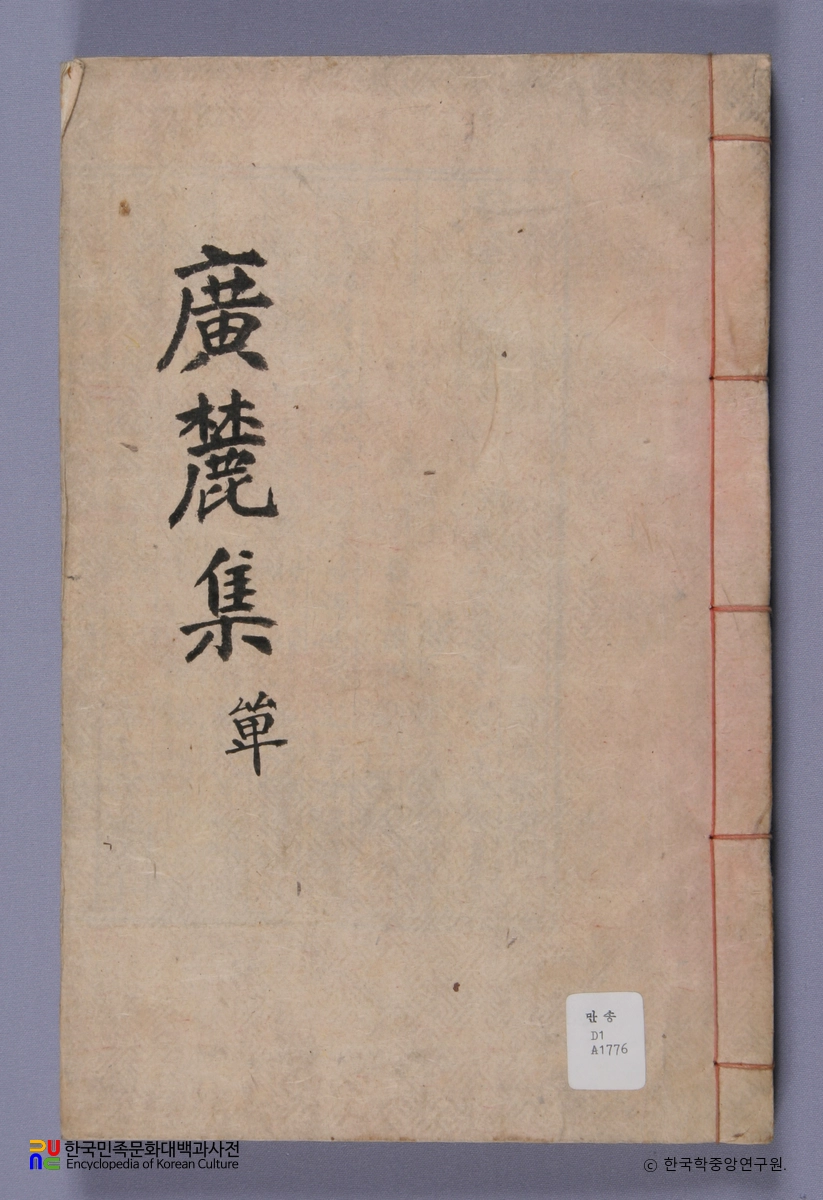 廣麓集 單
만송
D1
A1776
한국민족문화대백과사전
Encyclopedia of Korean Culture
ⓒ 한국학중앙연구원.